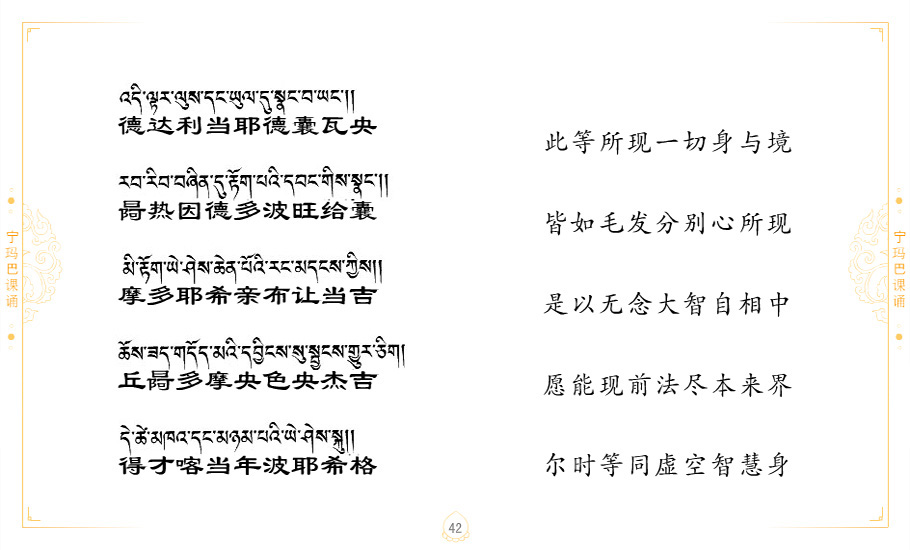 འདི་ལྟར་ལུས་དང་ཡུལ་དུ་སྣང་བ་ཡང་།།
德达利当耶德囊瓦央
རབ་རིབ་བཞིན་དུ་རྟོག་པའི་དབང་གིས་སྣང་།།
冔热因德多波旺给囊
མི་རྟོག་ཡེ་ཤེས་ཆེན་པོའི་རང་མདངས་ཀྱིས།།
摩多耶希亲布让当吉
ཆོས་ཟད་གདོད་མའི་དབྱིངས་སུ་སྦྱངས་གྱུར་ཅིག།
丘冔多摩央色央杰吉
དེ་ཚེ་མཁའ་དང་མཉམ་པའི་ཡེ་ཤེས་སྐུ།།
得才喀当年波耶希格
此等所现一切身与境
皆如毛发分别心所现
是以无念大智自相中
愿能现前法尽本来界
尔时等同虚空智慧身
宁玛巴课诵
宁玛巴课诵
42